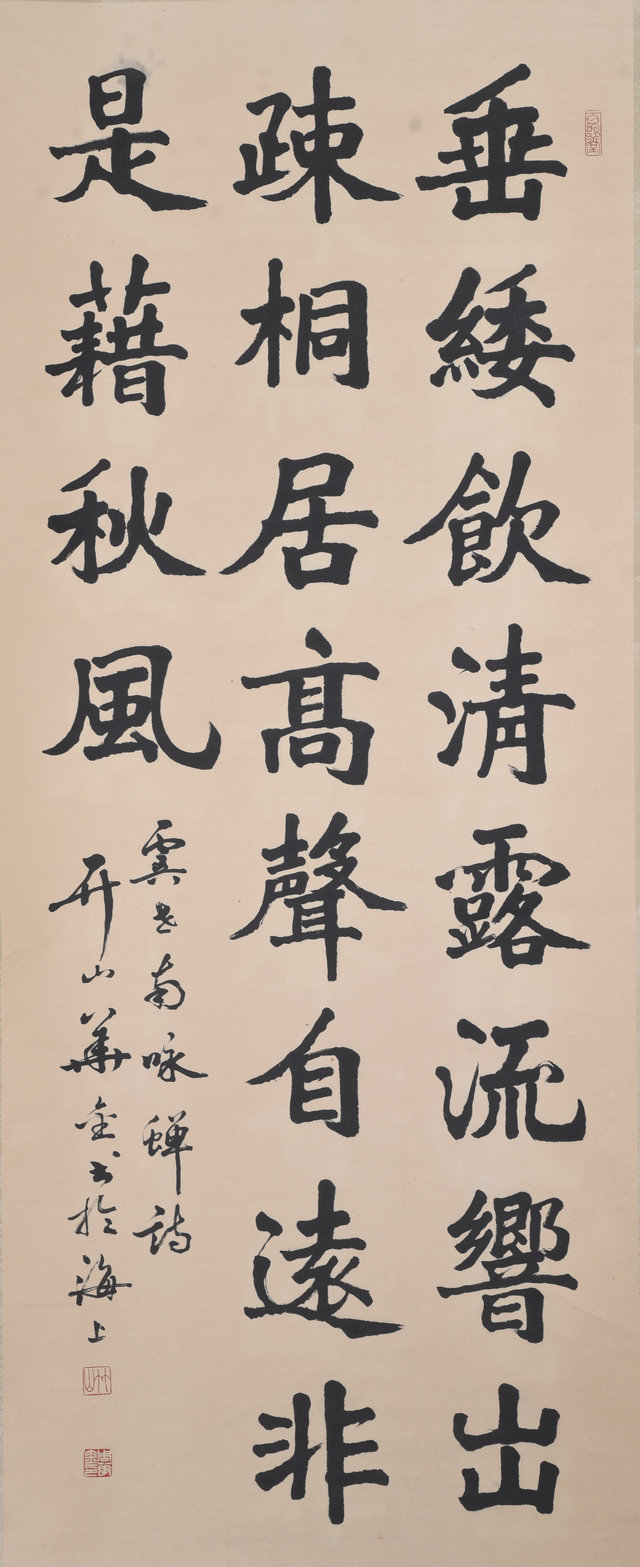 垂緌飲清露流響出
疎桐居髙聲自遠非
是藉秋風
虞世南咏蟬詩
山華金书於海上